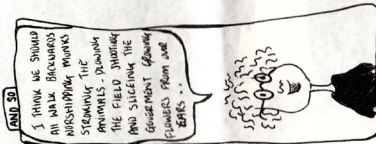 AND SO
I THINK WE SHOULD
All WALK BACKWARDS
WORSHIPPING MUNKS
STROKING THE
ANIMALS. PLOWING
THE FIELD SHOOTING
AND SLICEING THE
GOVERMENT GROWING
FLOWERS FROM OUR
EARS..